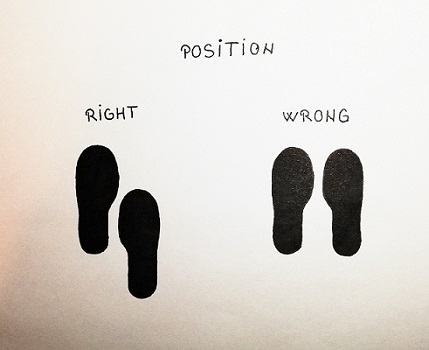 POSiTiON
RiGHT
WRONG